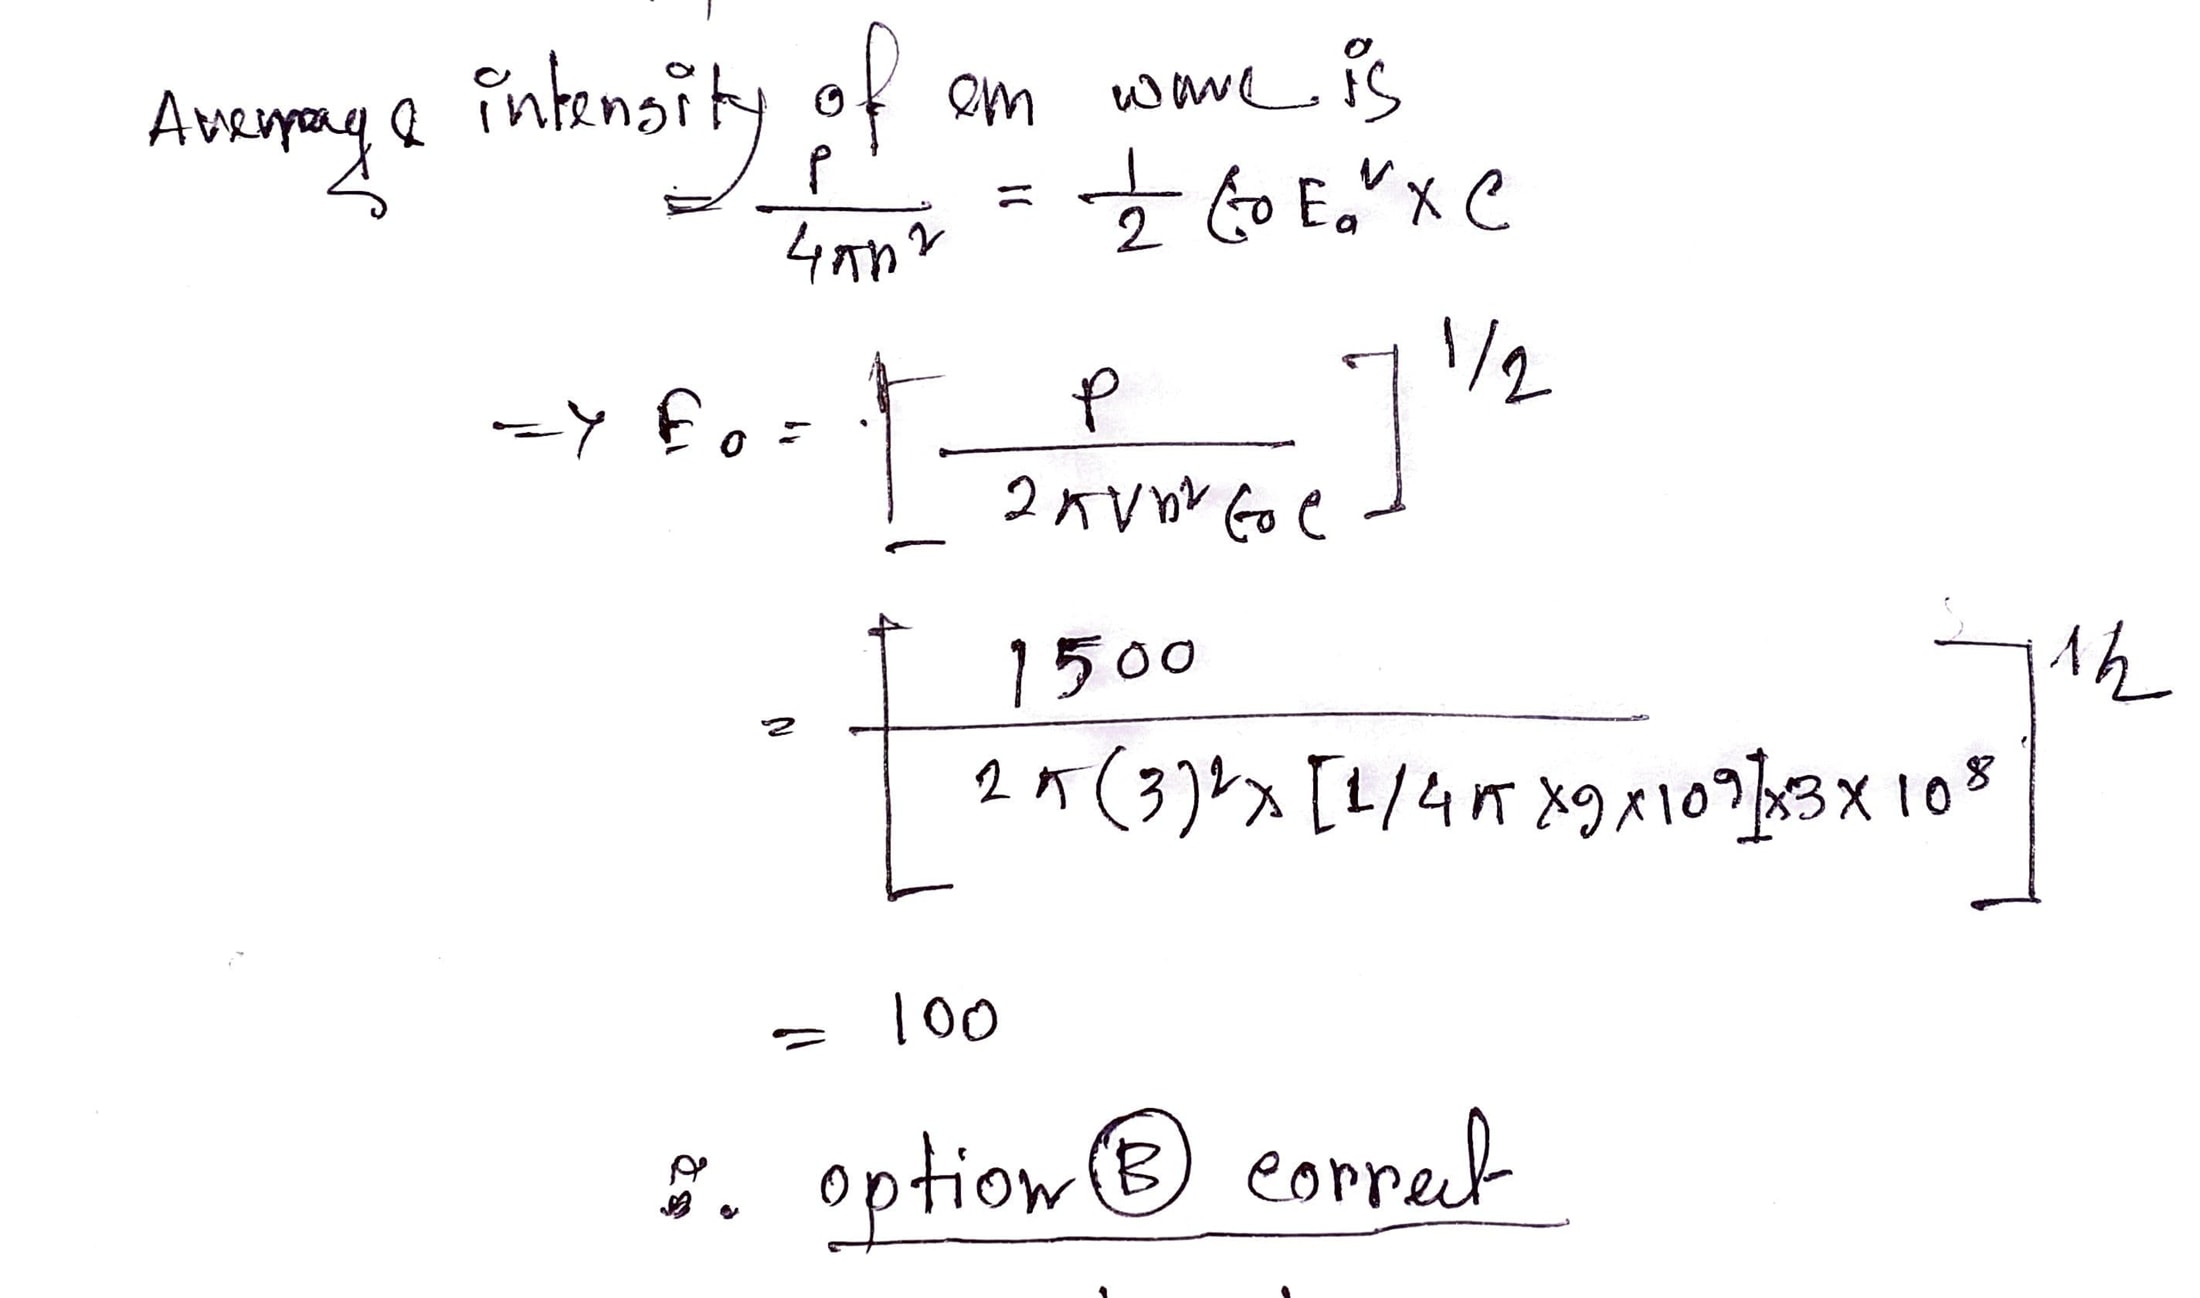 Average intensity of em wave is
= P/4πr² = 1/2 ε₀E₀² × C
=> E₀ = [P/2πr² ε₀ C]^1/2
= [1500/2π(3)² × [1/4π × 9 × 10⁹] × 3 × 10⁸]^1/2
= 100
∴ option Ⓑ correct